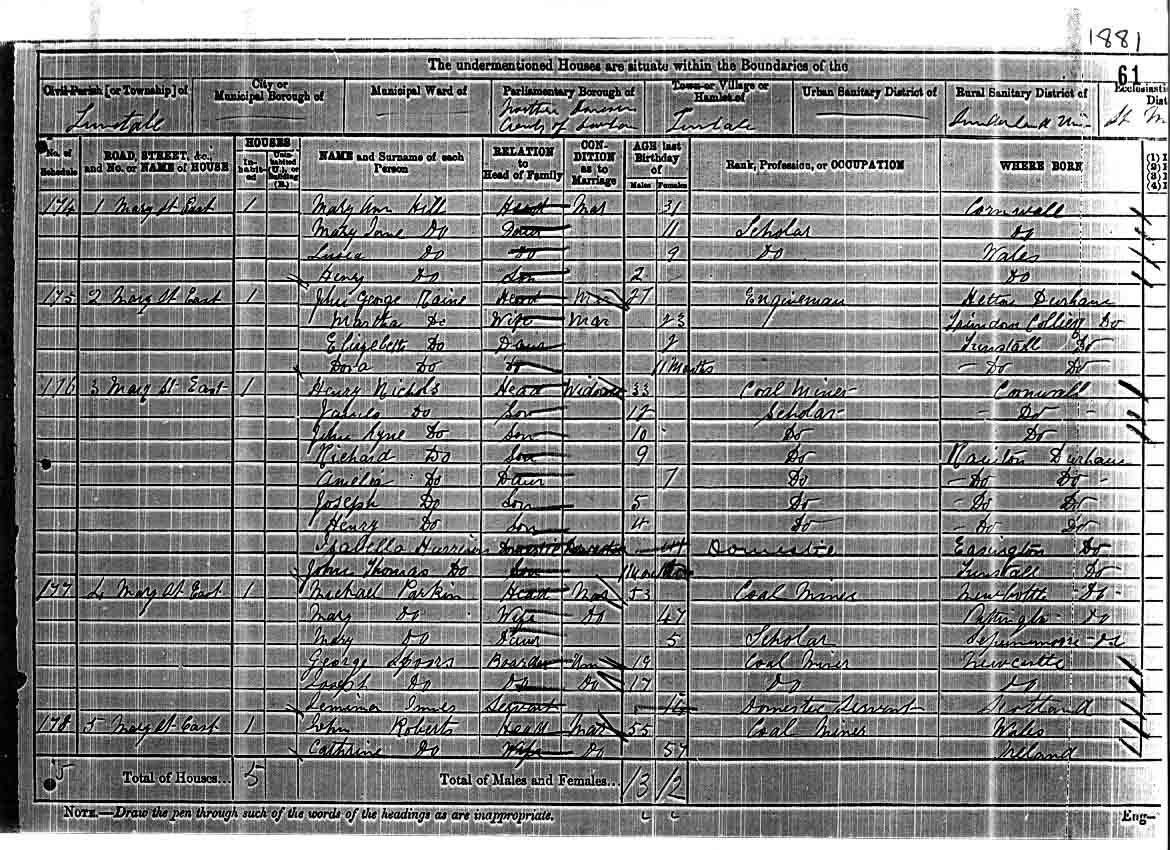 1881
The undermentioned Houses are situate within the Boundaries of the
61
Civil Parish [or Township] of
City or Municipal Borough of
Municipal Ward of
Parliamentary Borough of
Town or Village or Hamlet of
Urban Sanitary District of
Rural Sanitary District of
Ecclesiastic
Dist
Tunstall
of
St M
No. of Schedule
ROAD, STREET, &c., and No. or NAME of HOUSE
HOUSES
In-habit-ed
Unin-habited (U.), or Building (B.)
NAME and Surname of each Person
RELATION to Head of Family
CON-DITION as to Marriage
AGE last Birthday of
Males
Females
Rank, Profession, or OCCUPATION
WHERE BORN
(1) (2) (3) (4)
174 1 Mary St East 1 Mary Ann Hill Mar 31 Cornwall
Mary Jane Do Daur 11 Scholar Do
Do Do 9 Do Wales
Henry Do Son 2 Do
175 2 Mary St East 1 John George Raine Head Mar 27 Engineman Hetton Durham
Martha Do Wife Mar 23 Colliery Do
Elizabeth Do Daur 2 Tunstall Do
Dora Do Do 11 Months Do Do
176 3 Mary St East 1 Henry Nichols Head Widower 33 Coal Miner Cornwall
James Do Son 12 Scholar Do
John Do Son 10 Do Do
Richard Do Son 9 Do Rainton Durham
Amelia Do Daur 7 Do Do Do
Joseph Do Son 5 Do Do Do
Henry Do Son 4 Do Do Do
Isabella Domestic Domestic Easington Do
John Thomas Do Son Tunstall Do
177 4 Mary St East 1 Michael Parkin Head Mar 53 Coal Miner Newbottle Do
Mary Do Wife Do 47 Do
Mary Do Daur 5 Scholar Do
George Spoors Boarder Unm 19 Coal Miner Newcastle
Joseph Do Do Do 17 Do Do
Innes Servant 14 Domestic Servant Scotland
178 5 Mary St East 1 John Roberts Head Mar 55 Coal Miner Wales
Cathrine Do Wife Do 57 Ireland
5 Total of Houses... 5 Total of Males and Females... 13 12
NOTE.—Draw the pen through such of the words of the headings as are inappropriate.
Eng—